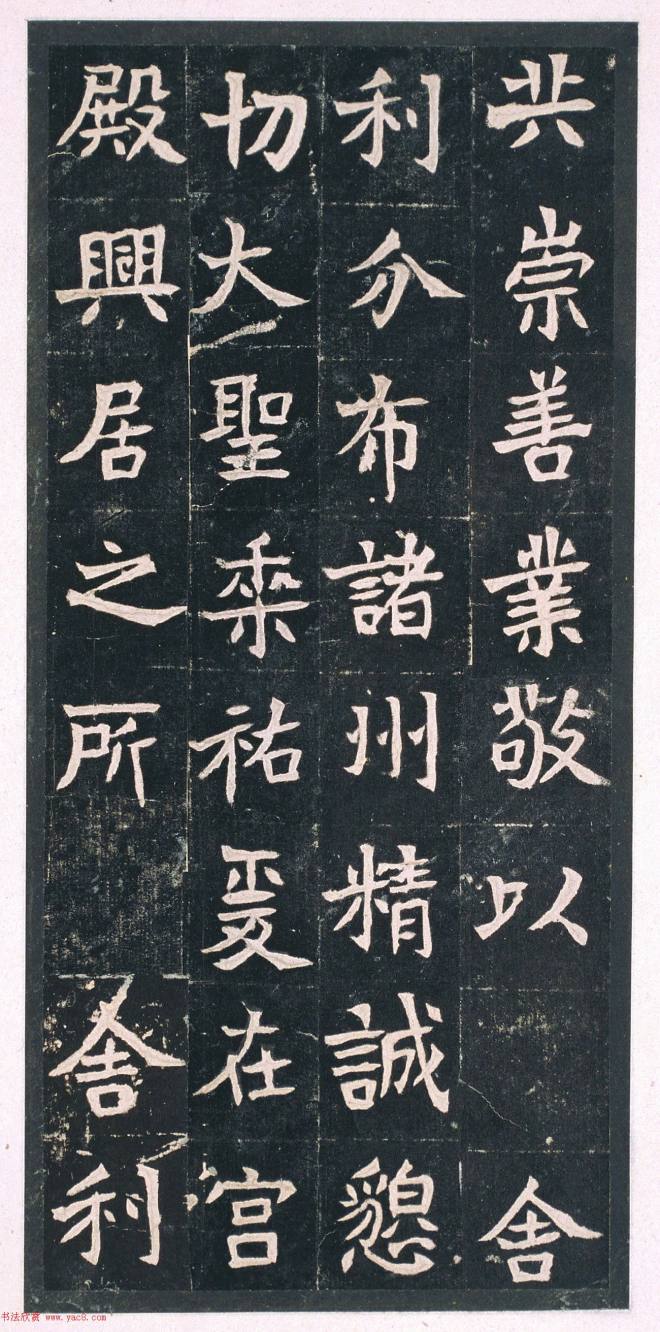 共崇善業敬以 舍
利分布諸州精誠懇
切大聖垂祐爰在宮
殿興居之所 舍利
书法欣赏 www.yac8.com